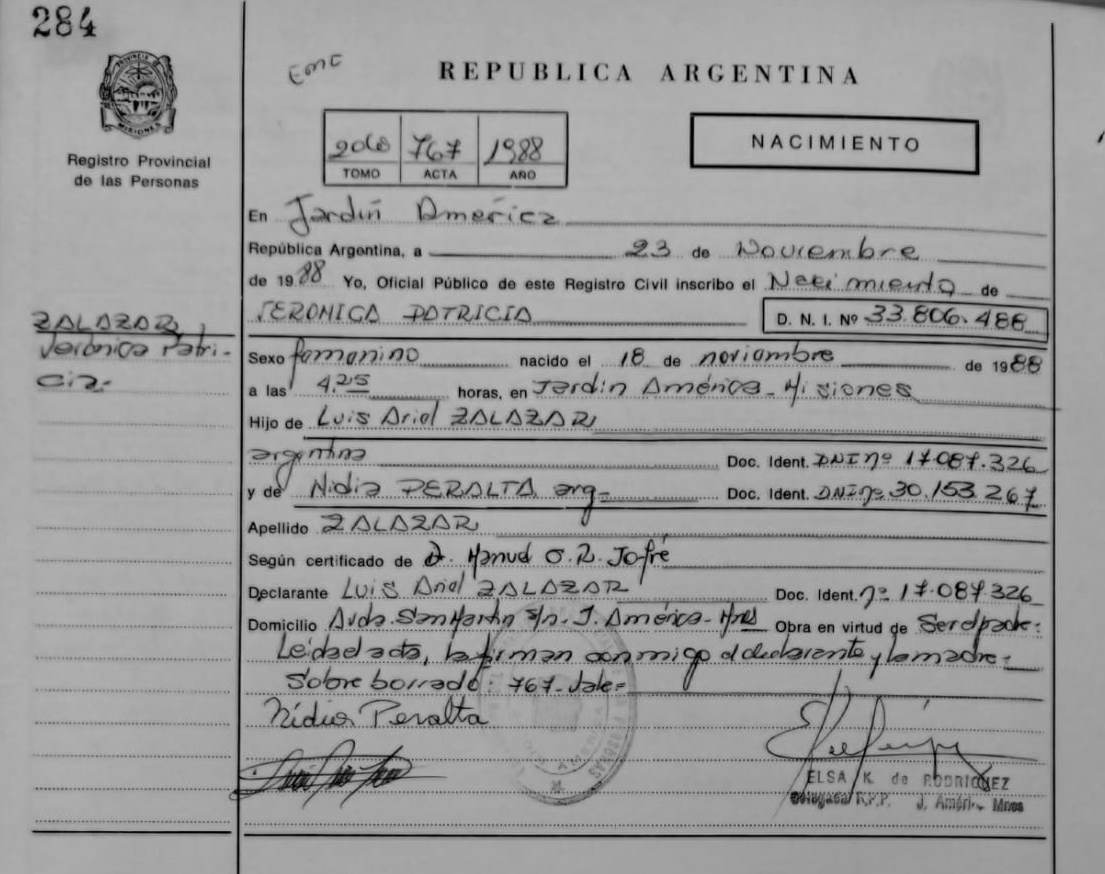 284
PROVINCIA DE MISIONES
Registro Provincial
de las Personas
ZALAZAR,
Verónica Patri-
cia-
REPUBLICA ARGENTINA
767 1988
TOMO ACTA AÑO
NACIMIENTO
En Jardín América
República Argentina, a 23 de Noviembre
de 1988 Yo, Oficial Público de este Registro Civil inscribo el Nacimiento de
VERONICA PATRICIA D. N. I. Nº 33.806.488
Sexo femenino nacido el 18 de noviembre de 1988
a las 4,25 horas, en Jardín América - Misiones
Hijo de Luis Ariel ZALAZAR
argentino Doc. Ident. DNI nº 17.087.326
y de Nidia PERALTA arg- Doc. Ident. DNI nº 30.153.267
Apellido ZALAZAR
Según certificado de D. Manuel O. R. Jofré
Declarante Luis Ariel ZALAZAR Doc. Ident. nº 17.087.326
Domicilio Avda. San Martín s/n - J. América - Mnes Obra en virtud de Ser el padre.-
Leída el acta, la firman conmigo el declarante y la madre.-
Sobre borrado: 767- Vale=
Nidia Peralta
ELSA K. de RODRIGUEZ
Delegada R.P.P. J. Améri. Mnes